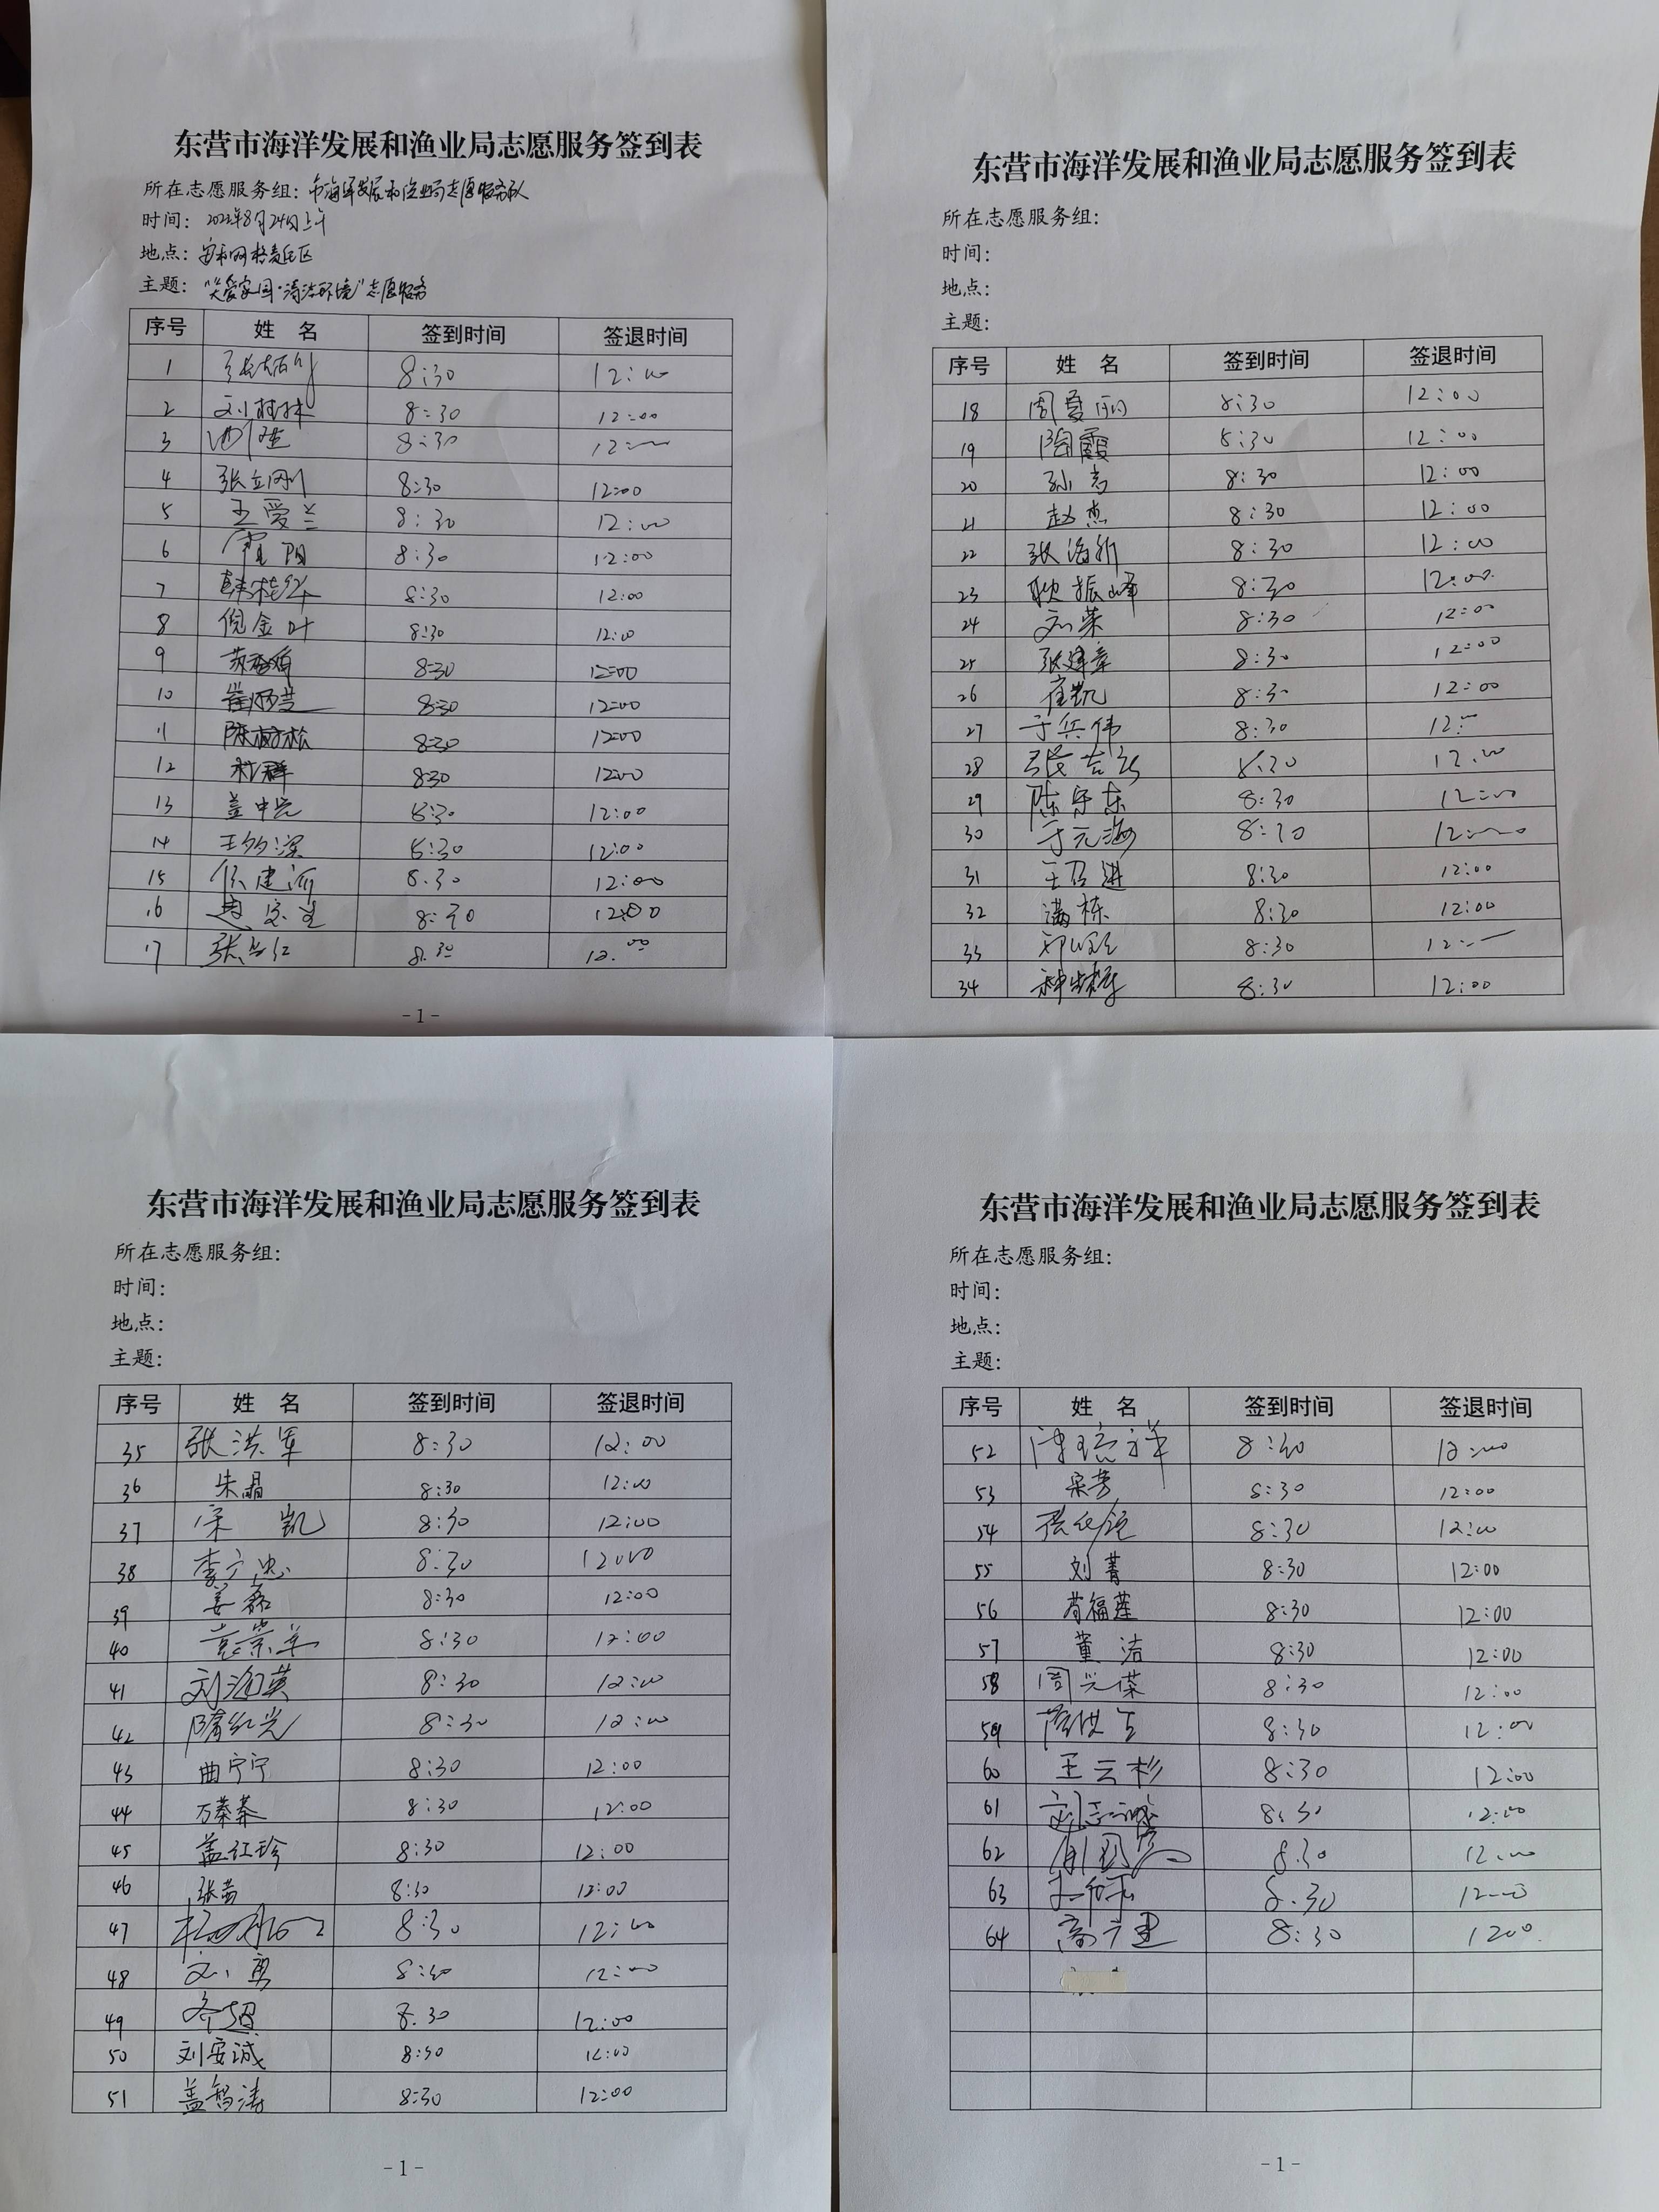 东营市海洋发展和渔业局志愿服务签到表
所在志愿服务组：市海洋发展和渔业局志愿服务队
时间：2022年8月24日上午
地点：安和网格责任区
主题："关爱家园·清洁环境"志愿服务
序号 姓 名 签到时间 签退时间
1 8:30 12:00
2 刘树林 8:30 12:00
3 8:30 12:00
4 张立刚 8:30 12:00
5 王爱兰 8:30 12:00
6 霍阳 8:30 12:00
7 韩桂华 8:30 12:00
8 倪金叶 8:30 12:00
9 8:30 12:00
10 8:30 12:00
11 陈树松 8:30 12:00
12 杜群 830 12:00
13 盖中党 8:30 12:00
14 8:30 12:00
15 8.30 12:00
16 8:30 12:00
17 8.30 12.00
-1-
东营市海洋发展和渔业局志愿服务签到表
所在志愿服务组：
时间：
地点：
主题：
序号 姓 名 签到时间 签退时间
18 周爱丽 8:30 12:00
19 陶霞 8:30 12:00
20 孙志 8:30 12:00
21 赵杰 8:30 12:00
22 张海新 8:30 12:00
23 耿振峰 8:30 12:00
24 刘荣 8:30 12:00
25 张建章 8:30 12:00
26 崔凯 8:30 12:00
27 于兵伟 8:30 12:
28 8:30 12.00
29 陈守东 8:30 12:00
30 于元海 8:30 12:00
31 王召进 8:30 12:00
32 满栋 8:30 12:00
33 8:30 12:
34 8:30 12:00
东营市海洋发展和渔业局志愿服务签到表
所在志愿服务组：
时间：
地点：
主题：
序号 姓 名 签到时间 签退时间
35 张洪军 8:30 12:00
36 朱晶 8:30 12:00
37 宋凯 8:30 12:00
38 李广忠 8:30 12:00
39 姜磊 8:30 12:00
40 袁荣军 8:30 12:00
41 刘海英 8:30 12:00
42 隋红光 8:30 12:00
43 曲宁宁 8:30 12:00
44 万蓁蓁 8:30 12:00
45 盖红珍 8:30 12:00
46 张苗 8:30 12:00
47 8:30 12:00
48 刘勇 8:30 12:00
49 8.30 12:00
50 刘安诚 8:30 12:00
51 盖智涛 8:30 12:00
-1-
东营市海洋发展和渔业局志愿服务签到表
所在志愿服务组：
时间：
地点：
主题：
序号 姓 名 签到时间 签退时间
52 陈瑞祥 8:30 12:00
53 宋芳 8:30 12:00
54 8:30 12:00
55 刘菁 8:30 12:00
56 苟福莲 8:30 12:00
57 董洁 8:30 12:00
58 周兴葆 8:30 12:00
59 8:30 12:00
60 王云杉 8:30 12:00
61 8:30 12:00
62 8.30 12.00
63 8.30 12:00
64 高广建 8:30 1200
-1-